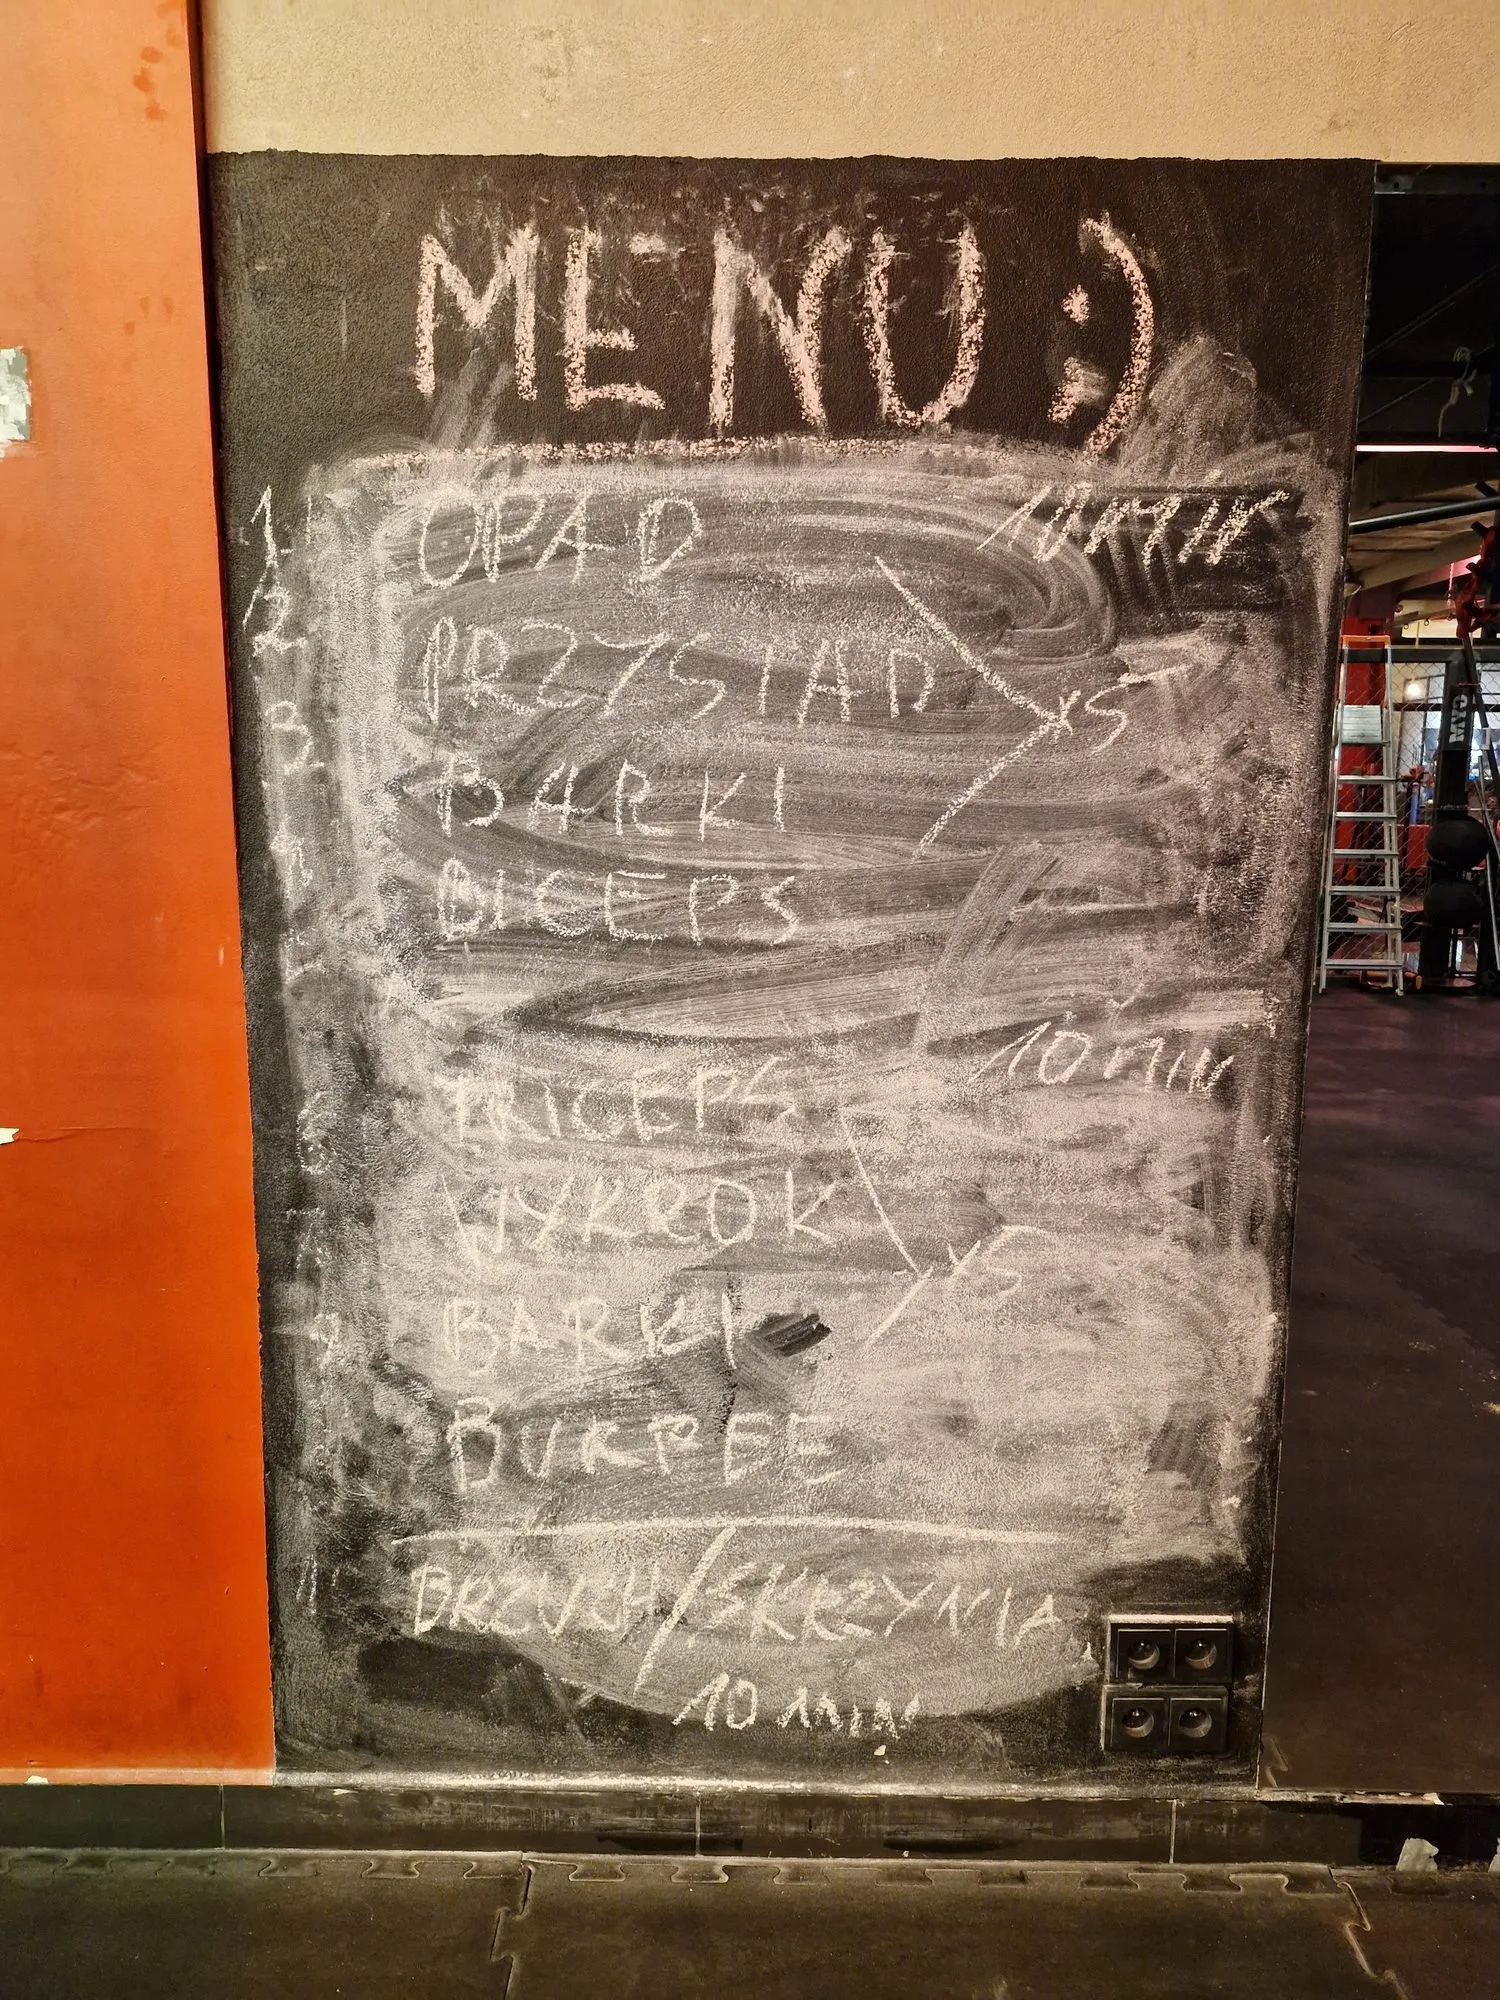 MENU :)
1. OPAD 10 MIN
2. PRZYSIAD x5
3. BARKI
BICEPS
10 MIN
TRICEPS
6
WYKROK x5
BARKI
BURPEE
BRZUCH/SKRZYNIA
10 MIN
GYM